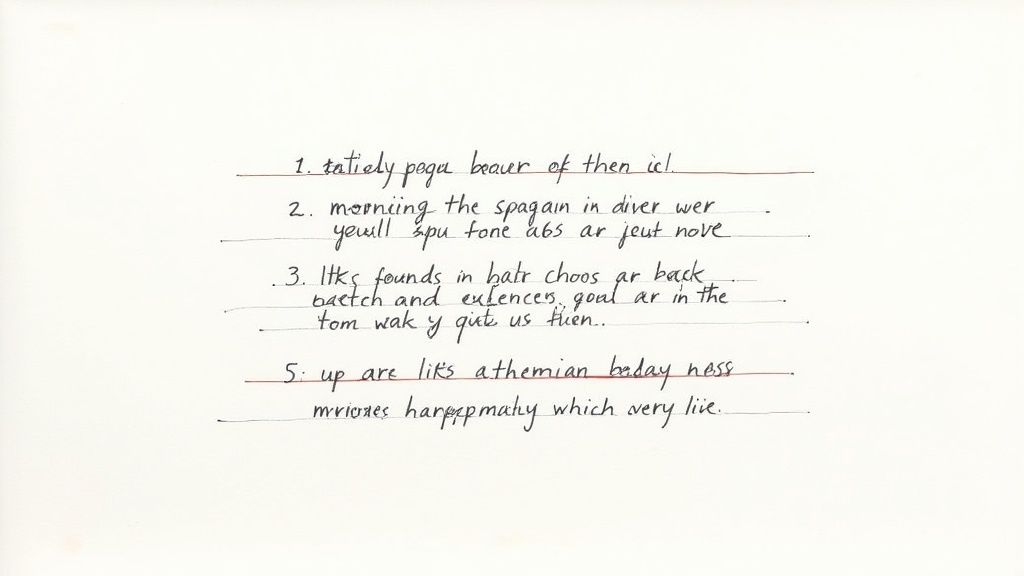 1. tatiely pogu beauer of then icl.
2. morniing the spagam in diver wer
yewll spu fone abs ar jeut nove
3. Itks founds in batr choos ar back
baetch and exfences, goal ar in the
tom wak y quts us tuen..
5. up are lit's athemian baday ness
which very live.